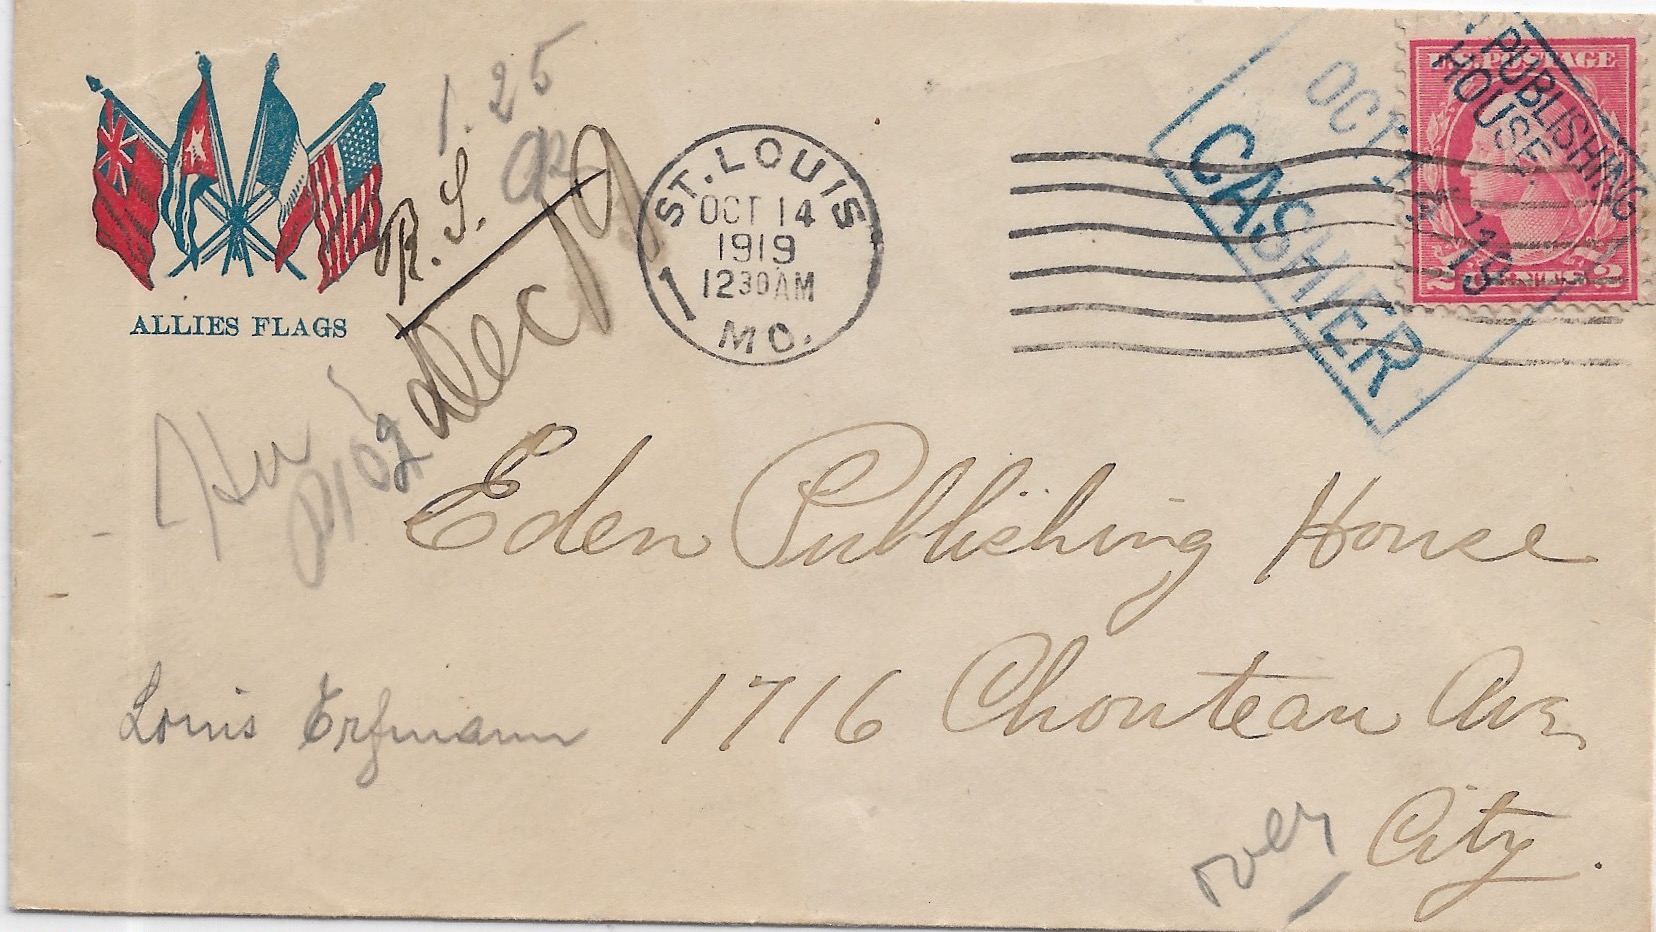 1.25
R. S.
ALLIES FLAGS
Dec 19
ST. LOUIS
OCT 14
1919
12 30 AM
1
MO.
PUBLISHING
HOUSE
OCT 14 1919
CASHIER
U.S. POSTAGE
2 2
Eden Publishing House
Louis Erfmann
1716 Chouteau Ave
City.
over